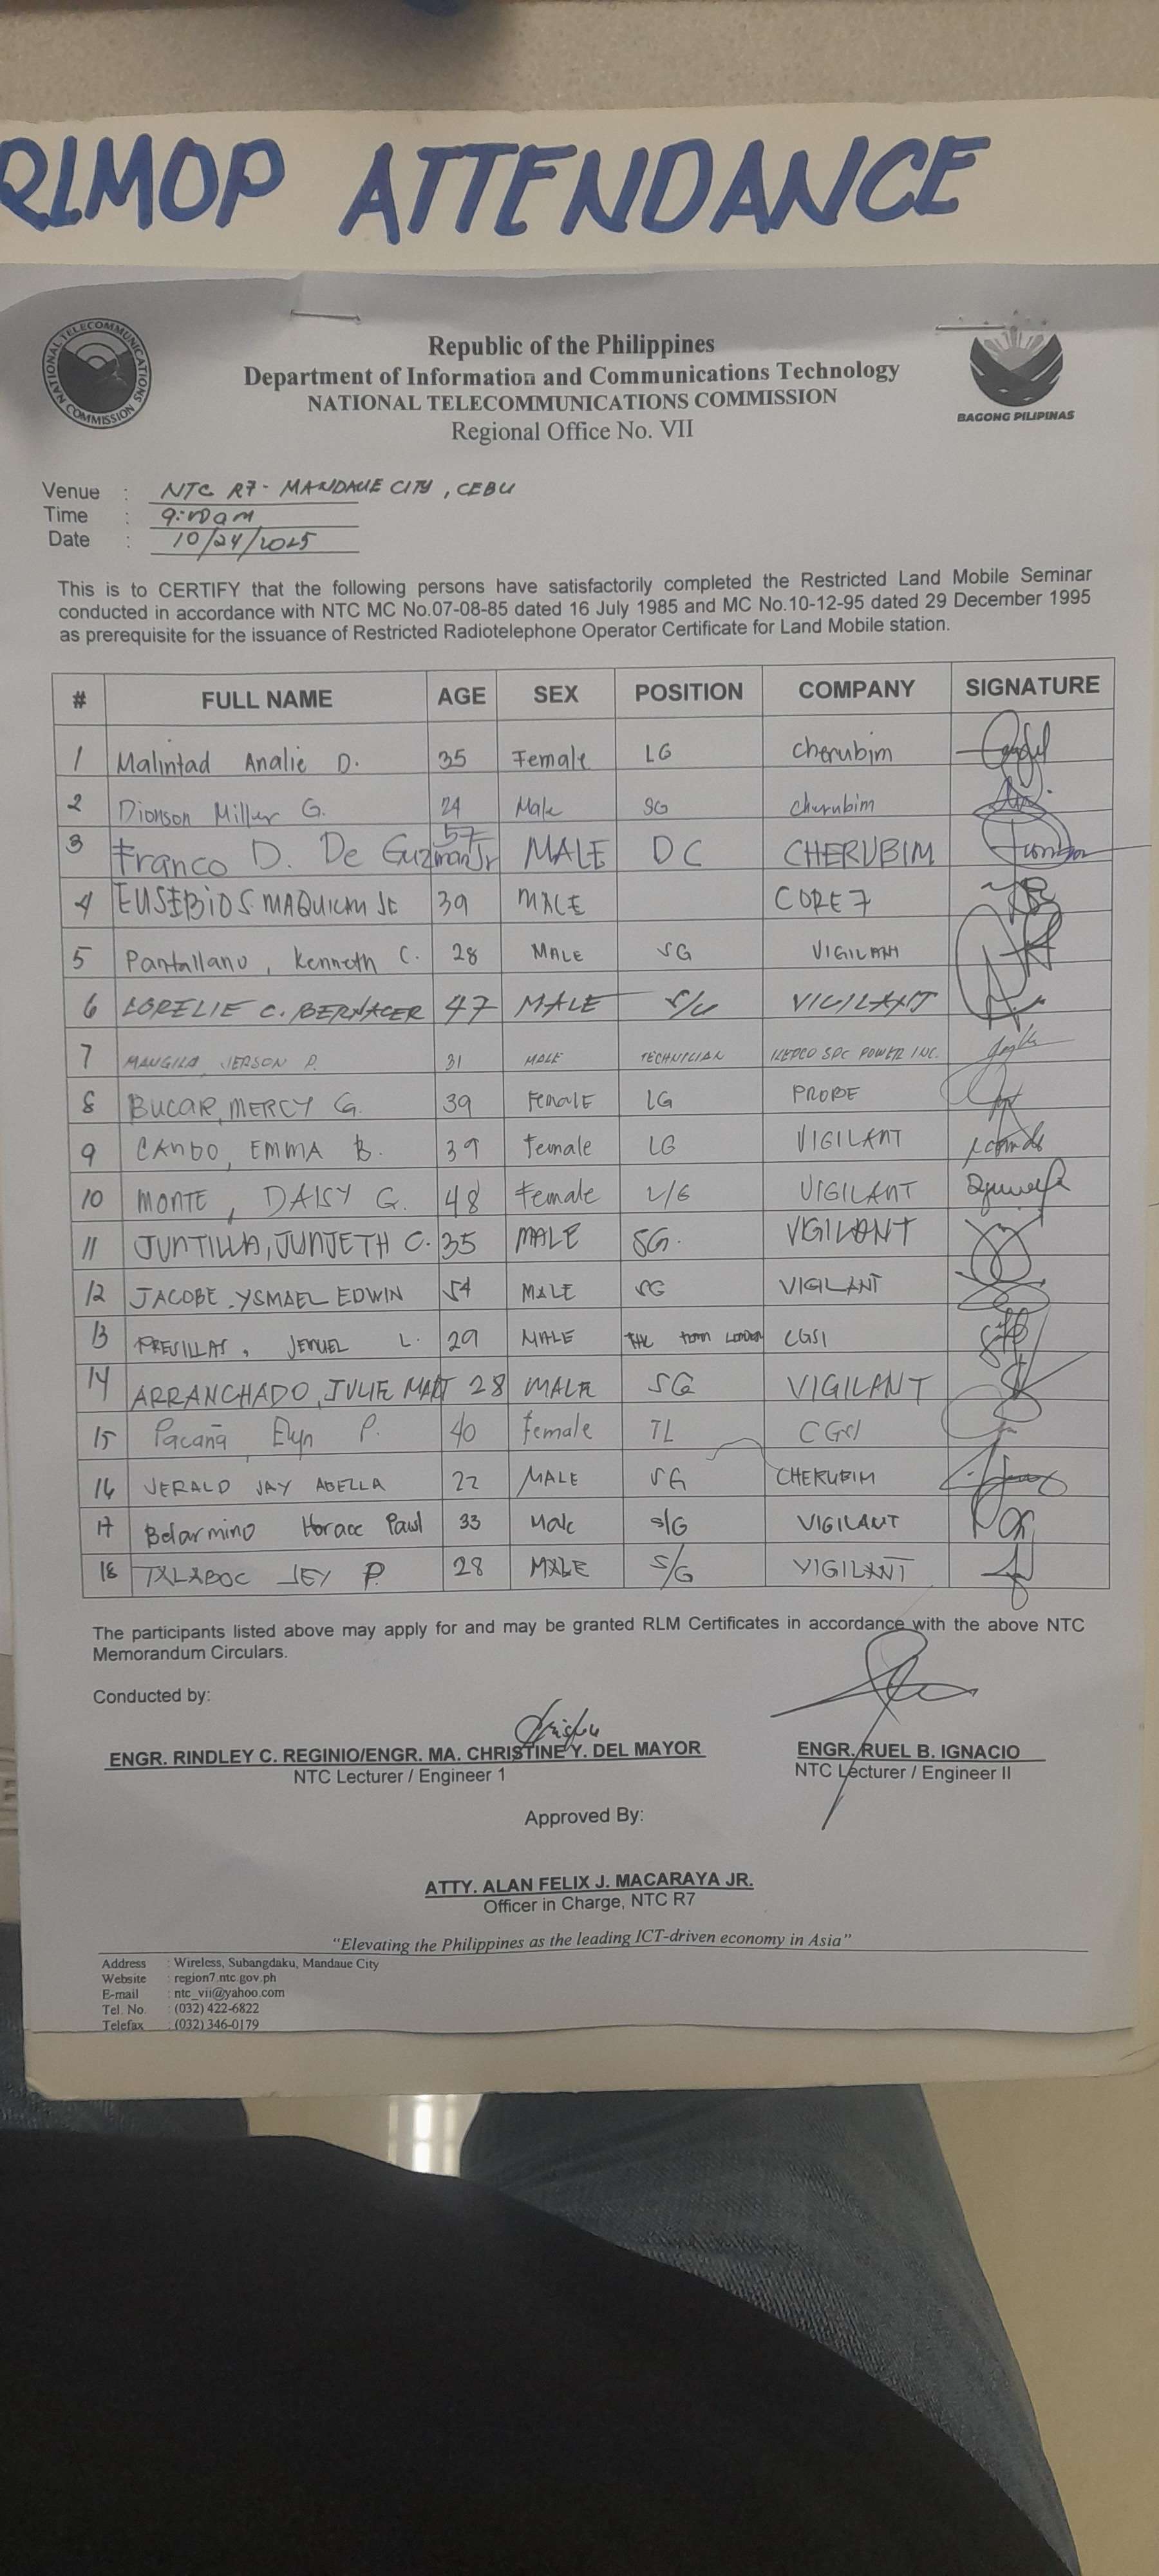 RLMOP ATTENDANCE
NATIONAL TELECOMMUNICATIONS COMMISSION
BAGONG PILIPINAS
Republic of the Philippines
Department of Information and Communications Technology
NATIONAL TELECOMMUNICATIONS COMMISSION
Regional Office No. VII
Venue : NTC R7 - MANDAUE CITY, CEBU
Time : 9:00am
Date : 10/24/2025
This is to CERTIFY that the following persons have satisfactorily completed the Restricted Land Mobile Seminar
conducted in accordance with NTC MC No.07-08-85 dated 16 July 1985 and MC No.10-12-95 dated 29 December 1995
as prerequisite for the issuance of Restricted Radiotelephone Operator Certificate for Land Mobile station.
# FULL NAME AGE SEX POSITION COMPANY SIGNATURE
1 Malintad Analie D. 35 Female LG Cherubim
2 Dionson Miller G. 24 Male SG cherubim
3 Franco D. De Guzman Jr 57 MALE DC CHERUBIM
4 EUSEBIO S. MAQUICAN 39 MALE CORE 7
5 Pantallano, Kenneth C. 28 MALE SG VIGILANT
6 LORELIE C. BERNACER 47 MALE S/G VIGILANT
7 MANGILA, JERSON P. 31 MALE TECHNICIAN KEPCO SPC POWER INC.
8 BUCAR, MERCY G. 39 Female LG PROBE
9 CANDO, EMMA B. 39 Female LG VIGILANT
10 MONTE, DAISY G. 48 Female L/G VIGILANT
11 JUNTILLA, JUNJETH C. 35 MALE SG. VIGILANT
12 JACOBE, YSMAEL EDWIN 54 MALE SG VIGILANT
13 PRESILLAS, JEMUEL L. 29 MALE CGSI
14 ARRANCHADO, JULIE MART 28 MALE SG VIGILANT
15 Pacaña Elyn P. 40 Female TL CGSI
16 JERALD JAY ABELLA 22 MALE SG CHERUBIM
17 Belarmino Horace Paul 33 Male S/G VIGILANT
18 TALABOC JEY P. 28 MALE S/G VIGILANT
The participants listed above may apply for and may be granted RLM Certificates in accordance with the above NTC
Memorandum Circulars.
Conducted by:
ENGR. RINDLEY C. REGINIO/ENGR. MA. CHRISTINE Y. DEL MAYOR
NTC Lecturer / Engineer 1
ENGR. RUEL B. IGNACIO
NTC Lecturer / Engineer II
Approved By:
ATTY. ALAN FELIX J. MACARAYA JR.
Officer in Charge, NTC R7
"Elevating the Philippines as the leading ICT-driven economy in Asia"
Address : Wireless, Subangdaku, Mandaue City
Website : region7.ntc.gov.ph
E-mail : ntc_vii@yahoo.com
Tel. No. : (032) 422-6822
Telefax : (032) 346-0179